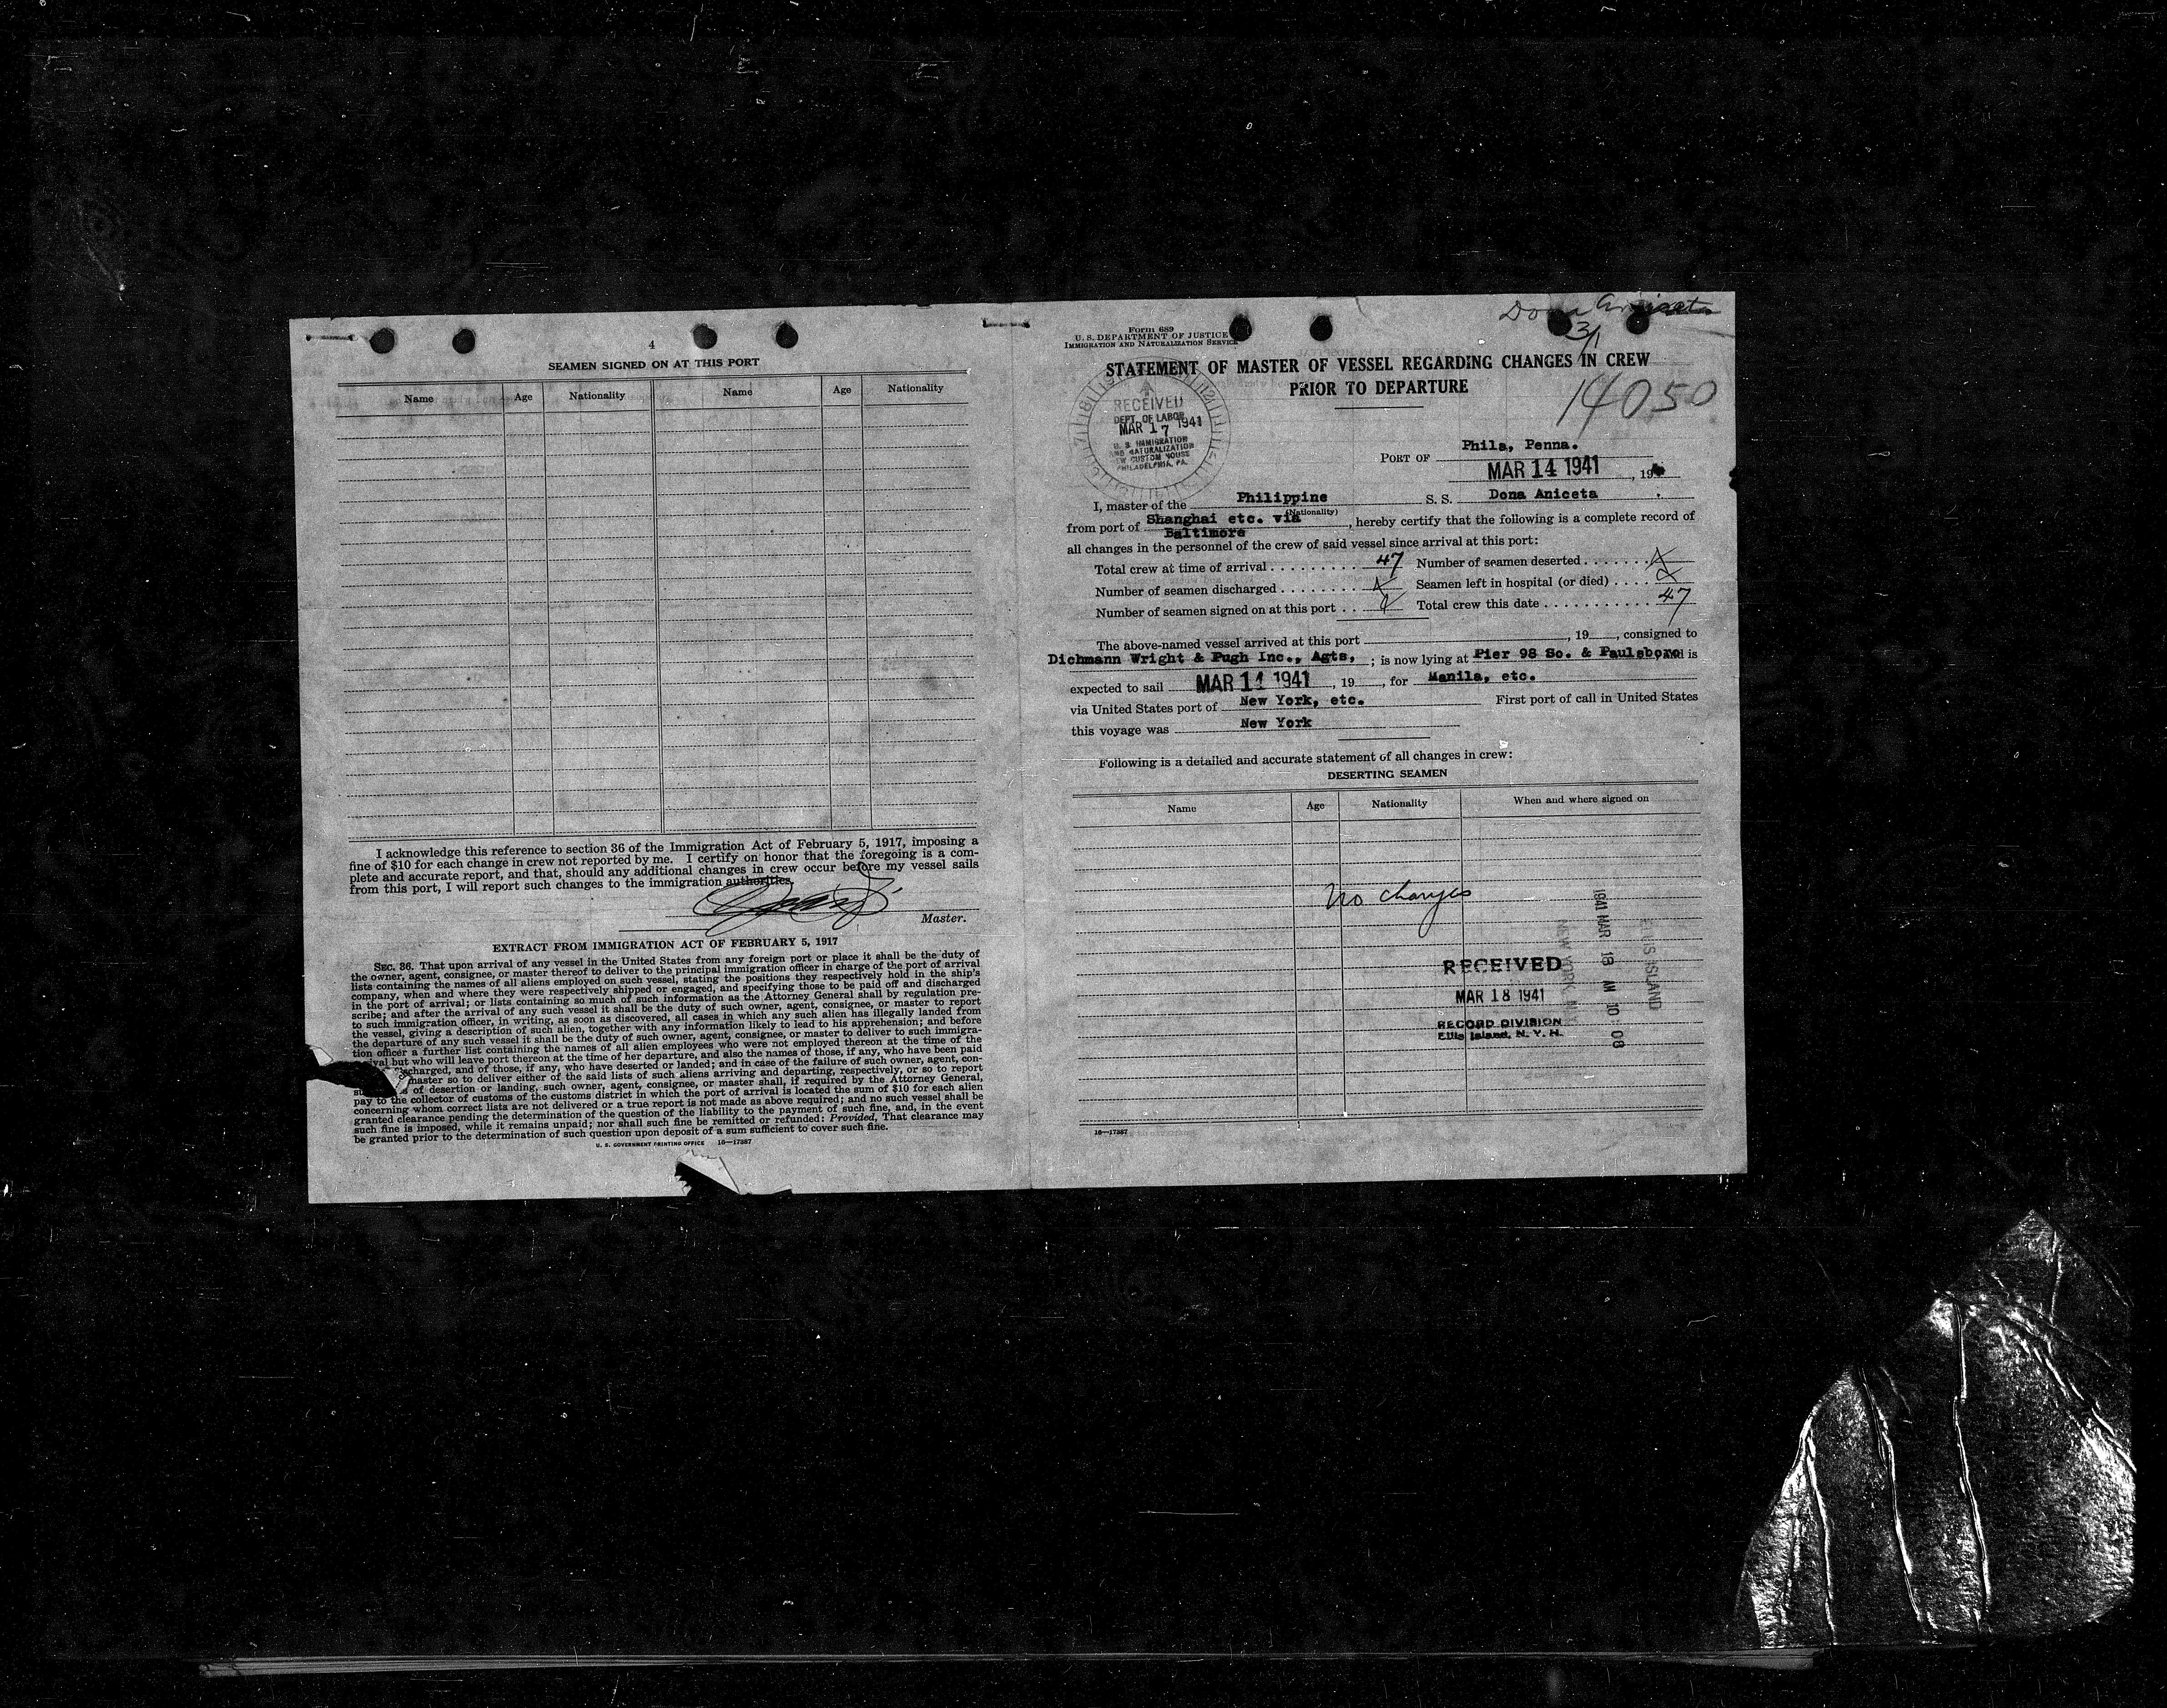 4
SEAMEN SIGNED ON AT THIS PORT
Name Age Nationality Name Age Nationality
I acknowledge this reference to section 36 of the Immigration Act of February 5, 1917, imposing a
fine of $10 for each change in crew not reported by me. I certify on honor that the foregoing is a com-
plete and accurate report, and that, should any additional changes in crew occur before my vessel sails
from this port, I will report such changes to the immigration authorities.
Master.
EXTRACT FROM IMMIGRATION ACT OF FEBRUARY 5, 1917
SEC. 36. That upon arrival of any vessel in the United States from any foreign port or place it shall be the duty of
the owner, agent, consignee, or master thereof to deliver to the principal immigration officer in charge of the port of arrival
lists containing the names of all aliens employed on such vessel, stating the positions they respectively hold in the ship's
company, when and where they were respectively shipped or engaged, and specifying those to be paid off and discharged
in the port of arrival; or lists containing so much of such information as the Attorney General shall by regulation pre-
scribe; and after the arrival of any such vessel it shall be the duty of such owner, agent, consignee, or master to report
to such immigration officer, in writing, as soon as discovered, all cases in which any such alien has illegally landed from
the vessel, giving a description of such alien, together with any information likely to lead to his apprehension; and before
the departure of any such vessel it shall be the duty of such owner, agent, consignee, or master to deliver to such immigra-
tion officer a further list containing the names of all alien employees who were not employed thereon at the time of the
rival but who will leave port thereon at the time of her departure, and also the names of those, if any, who have been paid
scharged, and of those, if any, who have deserted or landed; and in case of the failure of such owner, agent, con-
master so to deliver either of the said lists of such aliens arriving and departing, respectively, or so to report
su of desertion or landing, such owner, agent, consignee, or master shall, if required by the Attorney General,
pay to the collector of customs of the customs district in which the port of arrival is located the sum of $10 for each alien
concerning whom correct lists are not delivered or a true report is not made as above required; and no such vessel shall be
granted clearance pending the determination of the question of the liability to the payment of such fine, and, in the event
such fine is imposed, while it remains unpaid; nor shall such fine be remitted or refunded: Provided, That clearance may
be granted prior to the determination of such question upon deposit of a sum sufficient to cover such fine.
U. S. GOVERNMENT PRINTING OFFICE 16—17387
Dona Aniceta
3/1
Form 689
U. S. DEPARTMENT OF JUSTICE
IMMIGRATION AND NATURALIZATION SERVICE
STATEMENT OF MASTER OF VESSEL REGARDING CHANGES IN CREW
PRIOR TO DEPARTURE
14050
RECEIVED
DEPT. OF LABOR
MAR 17 1941
U. S. IMMIGRATION
AND NATURALIZATION
CUSTOM HOUSE
PHILADELPHIA, PA.
PORT OF Phila, Penna.
MAR 14 1941, 19
I, master of the Philippine S. S. Dona Aniceta
(Nationality)
from port of Shanghai etc. via Baltimore, hereby certify that the following is a complete record of
all changes in the personnel of the crew of said vessel since arrival at this port:
Total crew at time of arrival 47 Number of seamen deserted
Number of seamen discharged Seamen left in hospital (or died)
Number of seamen signed on at this port Total crew this date 47
The above-named vessel arrived at this port , 19 , consigned to
Dichmann Wright & Pugh Inc., Agts, ; is now lying at Pier 98 So. & Paulsboro and is
expected to sail MAR 14 1941, 19 , for Manila, etc.
via United States port of New York, etc. First port of call in United States
this voyage was New York
Following is a detailed and accurate statement of all changes in crew:
DESERTING SEAMEN
Name Age Nationality When and where signed on
No changes
RECEIVED
MAR 18 1941
RECORD DIVISION
Ellis Island, N. Y. H.
1941 MAR 18 AM 10:08
ELLIS ISLAND
NEW YORK
16—17387